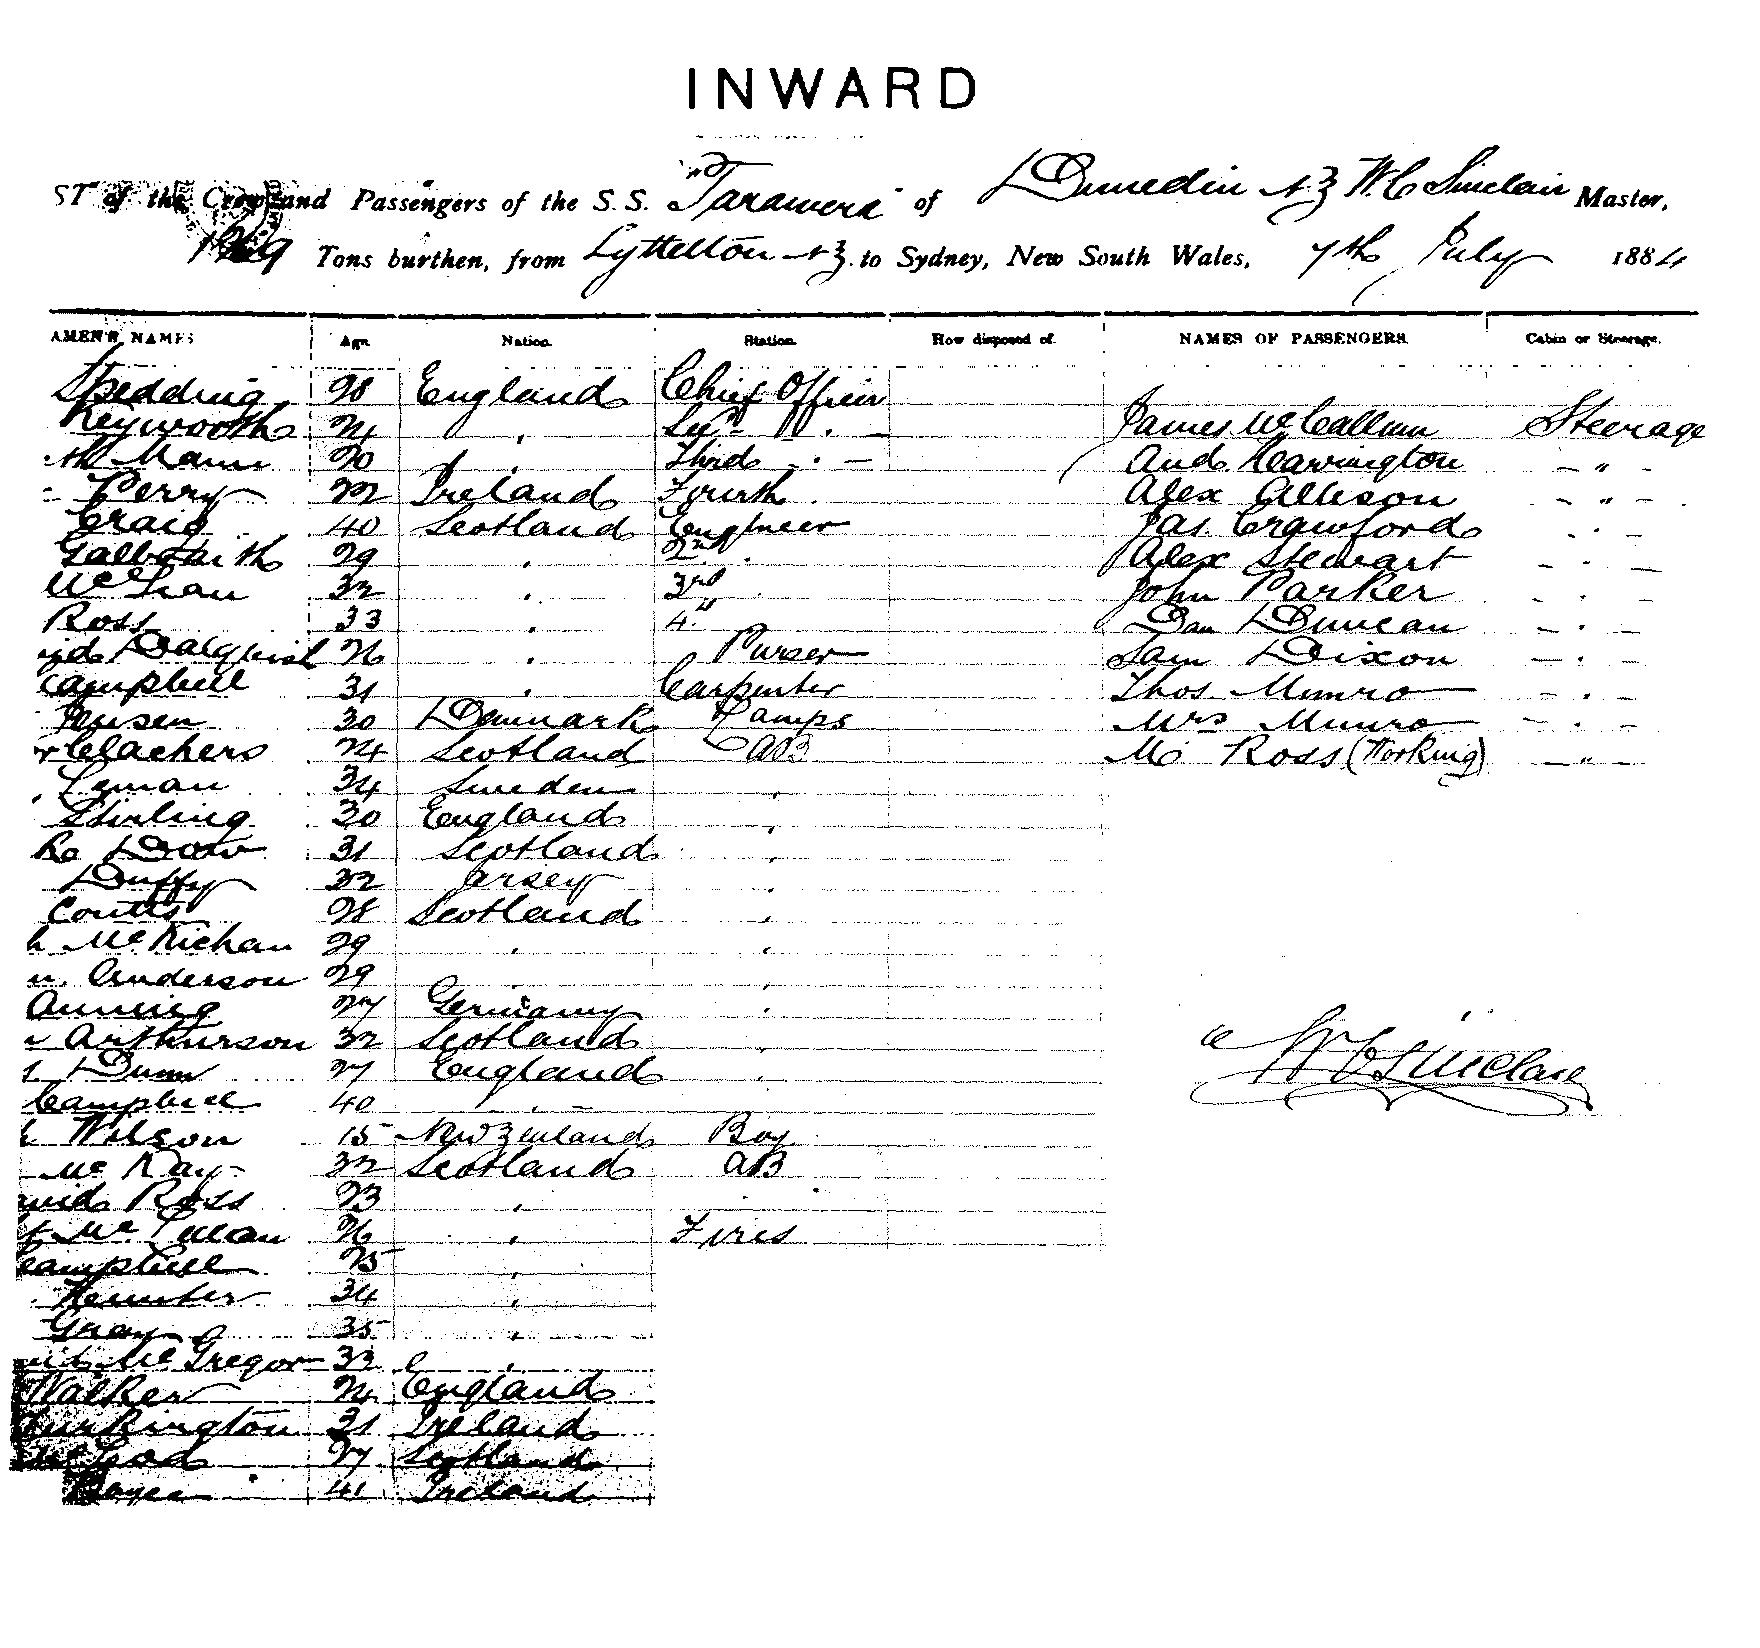 INWARD
ST of the Crew and Passengers of the S.S. "Tarawera" of Dunedin NZ W.C Sinclair Master,
Tons burthen, from Lyttelton NZ. to Sydney, New South Wales, 7th July 1884
AMEN'S NAMES Age. Nation. Station. How disposed of. NAMES OF PASSENGERS. Cabin or Steerage.
Spedding 28 England Chief Officer
Keyworth 24 " " James McCallum Steerage
Mann 20 " Third " And Harrington "
Perry 22 Ireland Fourth Alex Allison "
Craig 40 Scotland Engineer Jas. Crawford "
Galbraith 29 " 2nd " Alex Stewart "
McLean 32 " 3rd John Parker "
Ross 33 " 4" Dan Duncan "
Dalquish 26 " Purser Sam Dixon "
Campbell 31 " Carpenter Thos Munro "
Jensen 30 Denmark Lamps Mrs Munro "
Clachers 24 Scotland AB Mr Ross (Working) "
Leman 34 Sweden "
Stirling 30 England "
Dow 31 Scotland "
Duffy 32 Jersey "
Coutts 28 Scotland "
McKichan 29 " "
Anderson 29 "
Anning 27 Germany "
Arthurson 32 Scotland "
Dunn 27 England "
Campbell 40 "
Wilson 15 New Zealand Boy
McKay 32 Scotland AB
Ross 23 " "
26 " Fires
Campbell 25 "
34 "
Gray 35 "
McGregor 33 "
Walker 24 England
Turkington 31 Ireland
McLeod 27 Scotland
41 Ireland
W C Sinclair